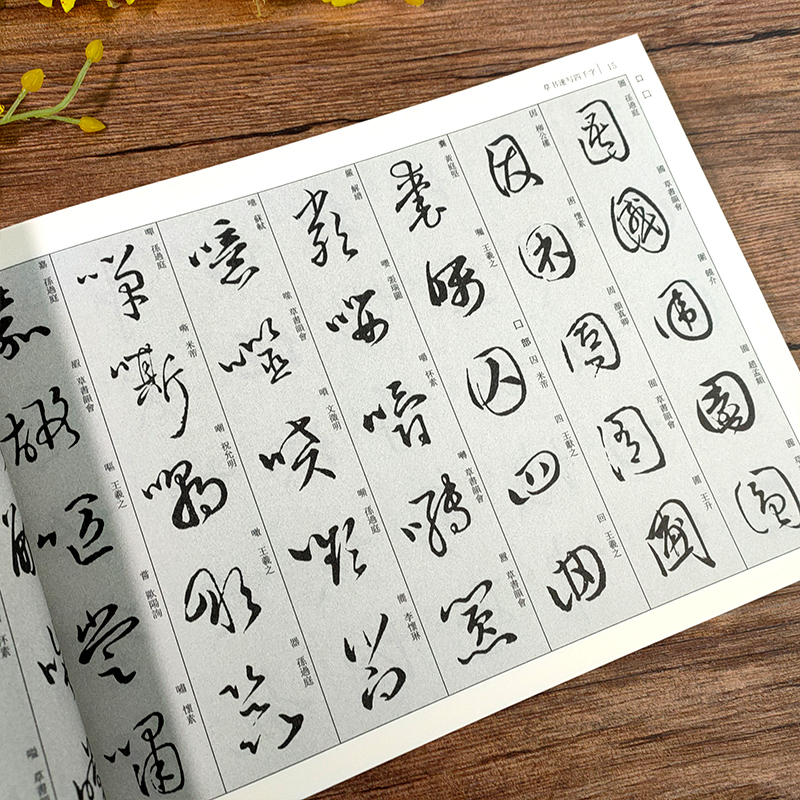 草书速写四千字 | 15
口 囗
嘉 孫過庭
嘏 草書韻會
嘔 王羲之
嘗 歐陽詢
嘯 懷素
孫過庭
嘶 米芾
嘲 祝允明
噉 王羲之
器 孫過庭
噫 蘇軾
噬 草書韻會
噴 文徵明
孫過庭
嚮 李懷琳
嚴 解縉
嚶 張瑞圖
嚼 怀素
囀 草書韻會
囂 草書韻會
囊 黃庭堅
囑 王羲之
囗部
囚 米芾
四 王獻之
回 王羲之
因 柳公權
困 懷素
固 顏真卿
草書韻會
圃 王升
孫過庭
國 草書韻會
饒介
園 趙孟頫
圓
怀素
草書韻會